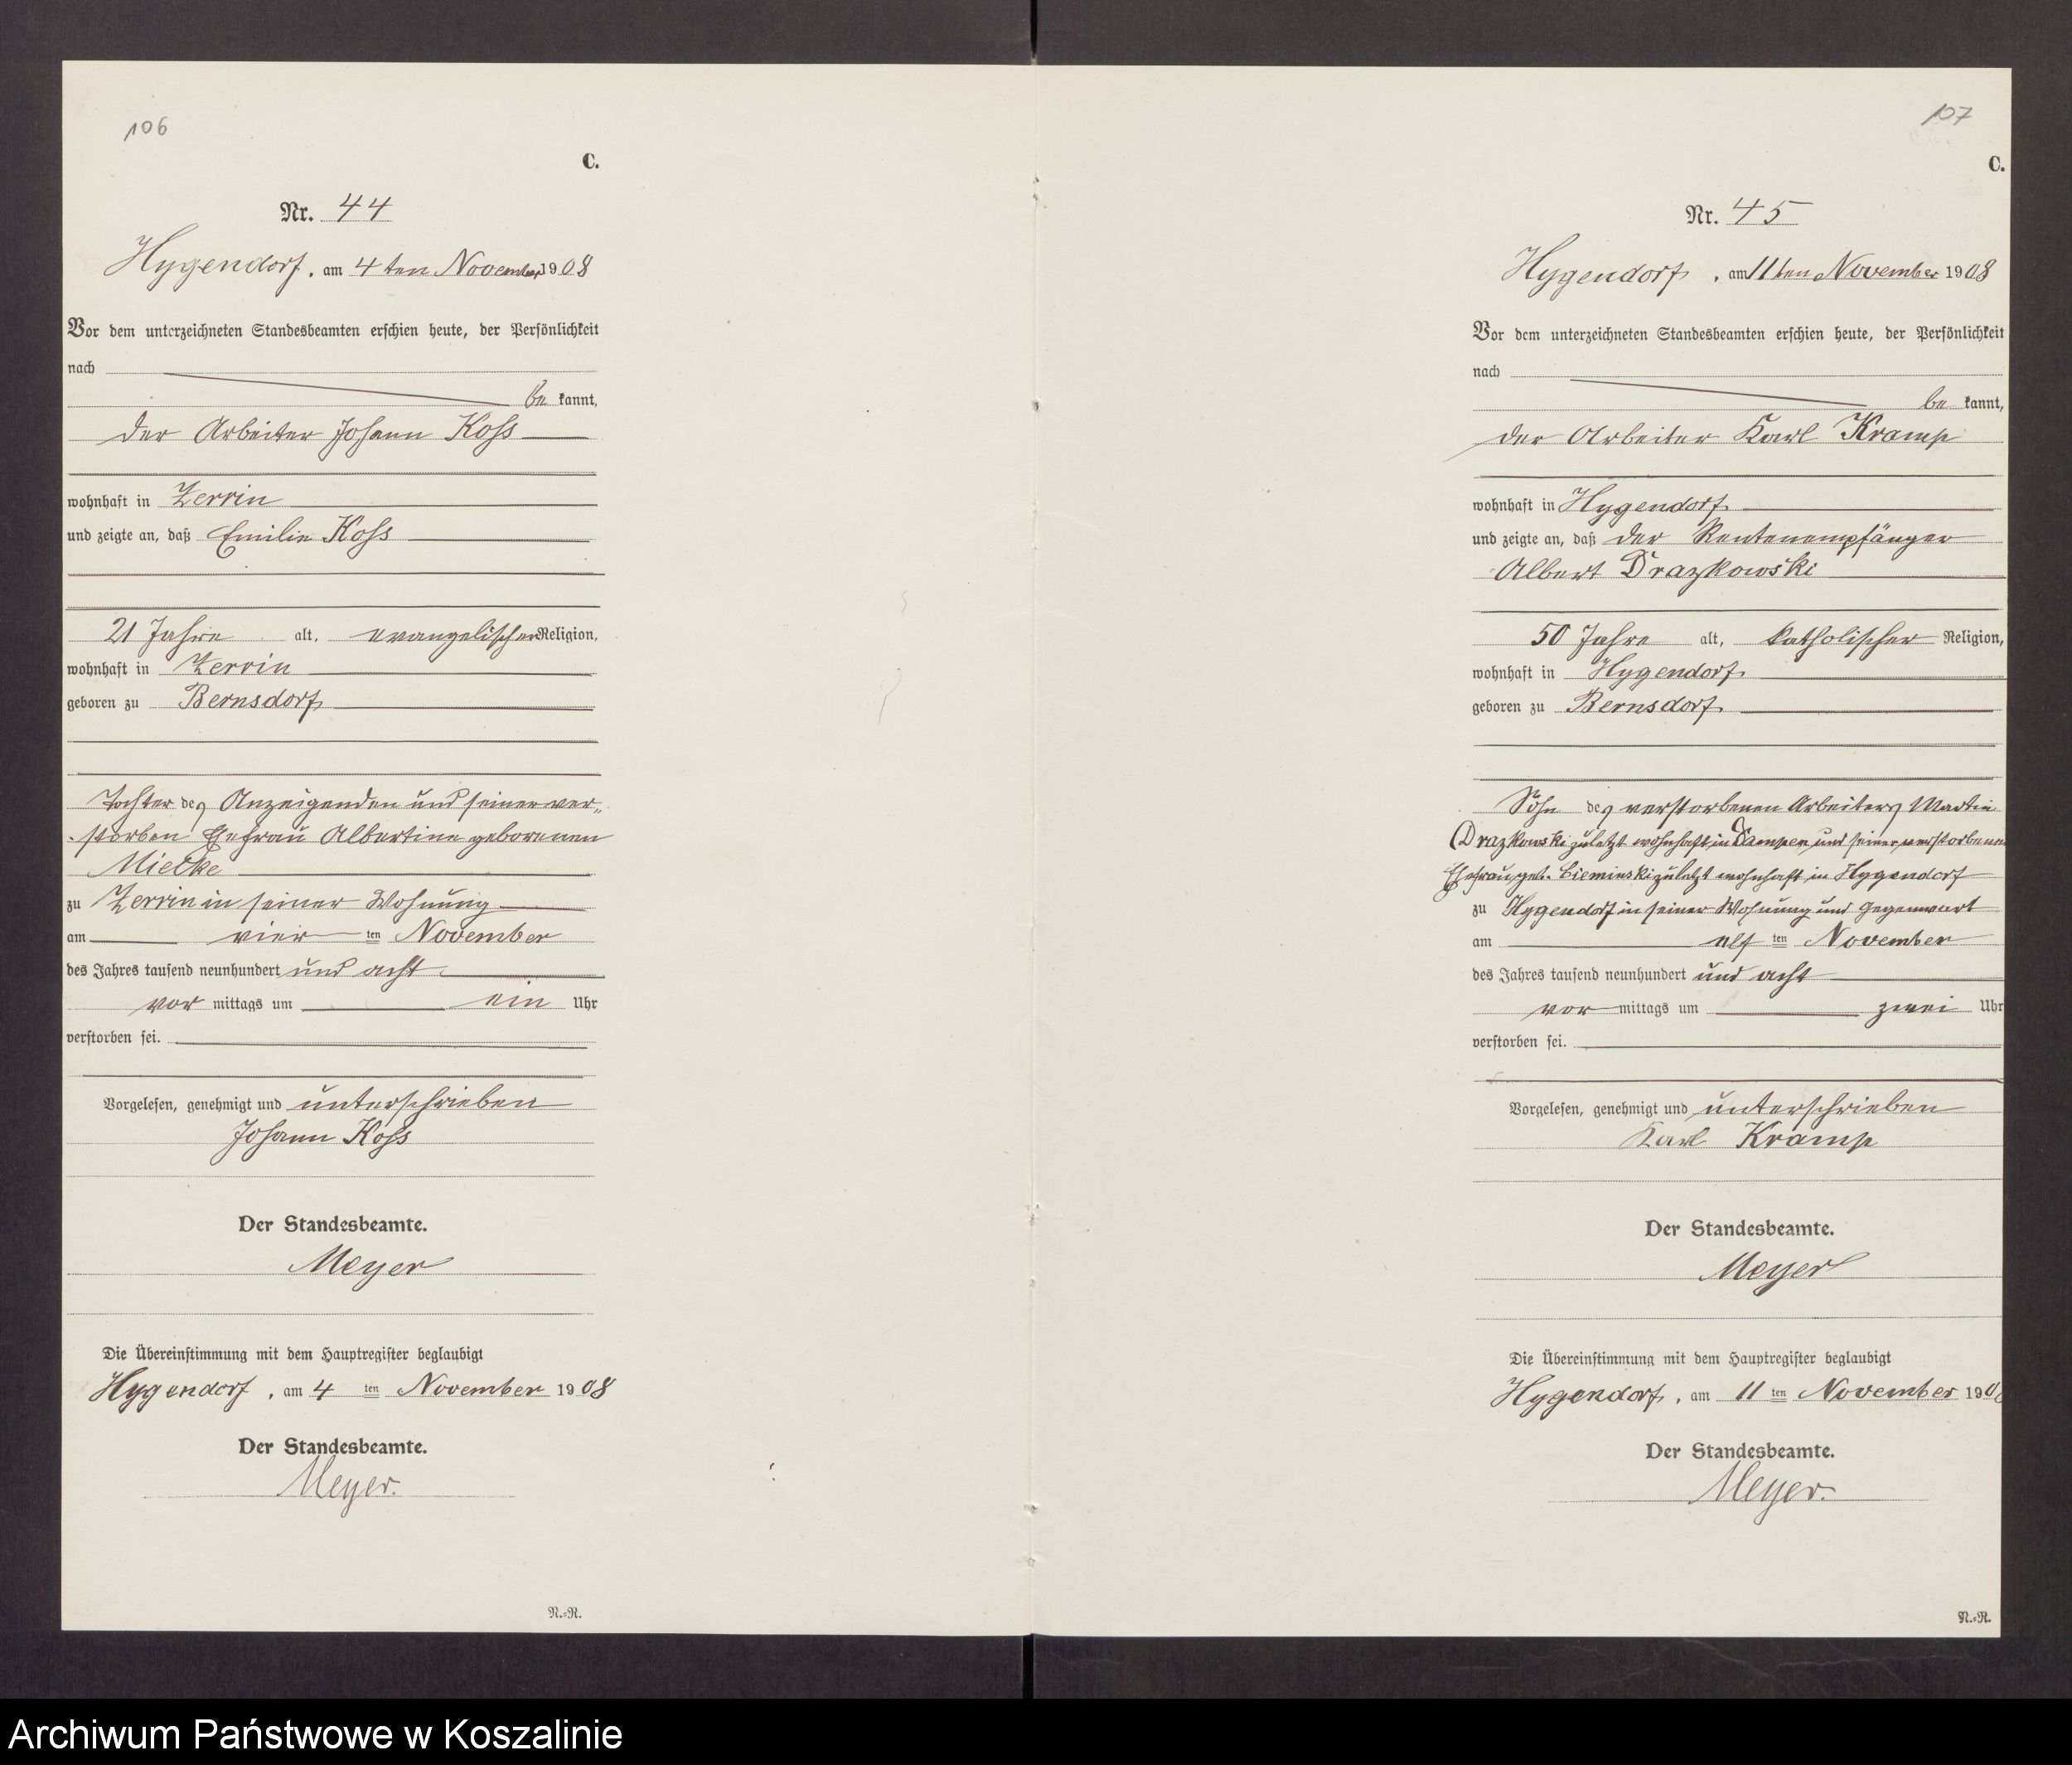 106
C.
Nr. 44
Hygendorf, am 4ten November 1908
Vor dem unterzeichneten Standesbeamten erschien heute, der Persönlichkeit
nach
be kannt,
der Arbeiter Johann Koss
wohnhaft in Zerrin
und zeigte an, daß Emilie Koss
21 Jahre alt, evangelischer Religion,
wohnhaft in Zerrin
geboren zu Bernsdorf
Tochter des Anzeigenden und seiner ver-
storben Ehefrau Albertine geborenen
Mielke
zu Zerrin in seiner Wohnung
am vier ten November
des Jahres tausend neunhundert und acht
vor mittags um ein Uhr
verstorben sei.
Vorgelesen, genehmigt und unterschrieben
Johann Koss
Der Standesbeamte.
Meyer
Die Übereinstimmung mit dem Hauptregister beglaubigt
Hygendorf, am 4 ten November 1908
Der Standesbeamte.
Meyer.
N.-R.
107
C.
Nr. 45
Hygendorf, am 11ten November 1908
Vor dem unterzeichneten Standesbeamten erschien heute, der Persönlichkeit
nach
be kannt,
der Arbeiter Karl Kramp
wohnhaft in Hygendorf
und zeigte an, daß der Rentenempfänger
Albert Drazkowski
50 Jahre alt, katholischer Religion,
wohnhaft in Hygendorf
geboren zu Bernsdorf
Sohn des verstorbenen Arbeiters Martin
Drazkowski zuletzt wohnhaft in und seiner verstorbenen
Ehefrau geb. Cieminski zuletzt wohnhaft in Hygendorf
zu Hygendorf in seiner Wohnung und Gegenwart
am elf ten November
des Jahres tausend neunhundert und acht
vor mittags um zwei Uhr
verstorben sei.
Vorgelesen, genehmigt und unterschrieben
Karl Kramp
Der Standesbeamte.
Meyer
Die Übereinstimmung mit dem Hauptregister beglaubigt
Hygendorf, am 11 ten November 1908
Der Standesbeamte.
Meyer.
N.-R.
Archiwum Państwowe w Koszalinie